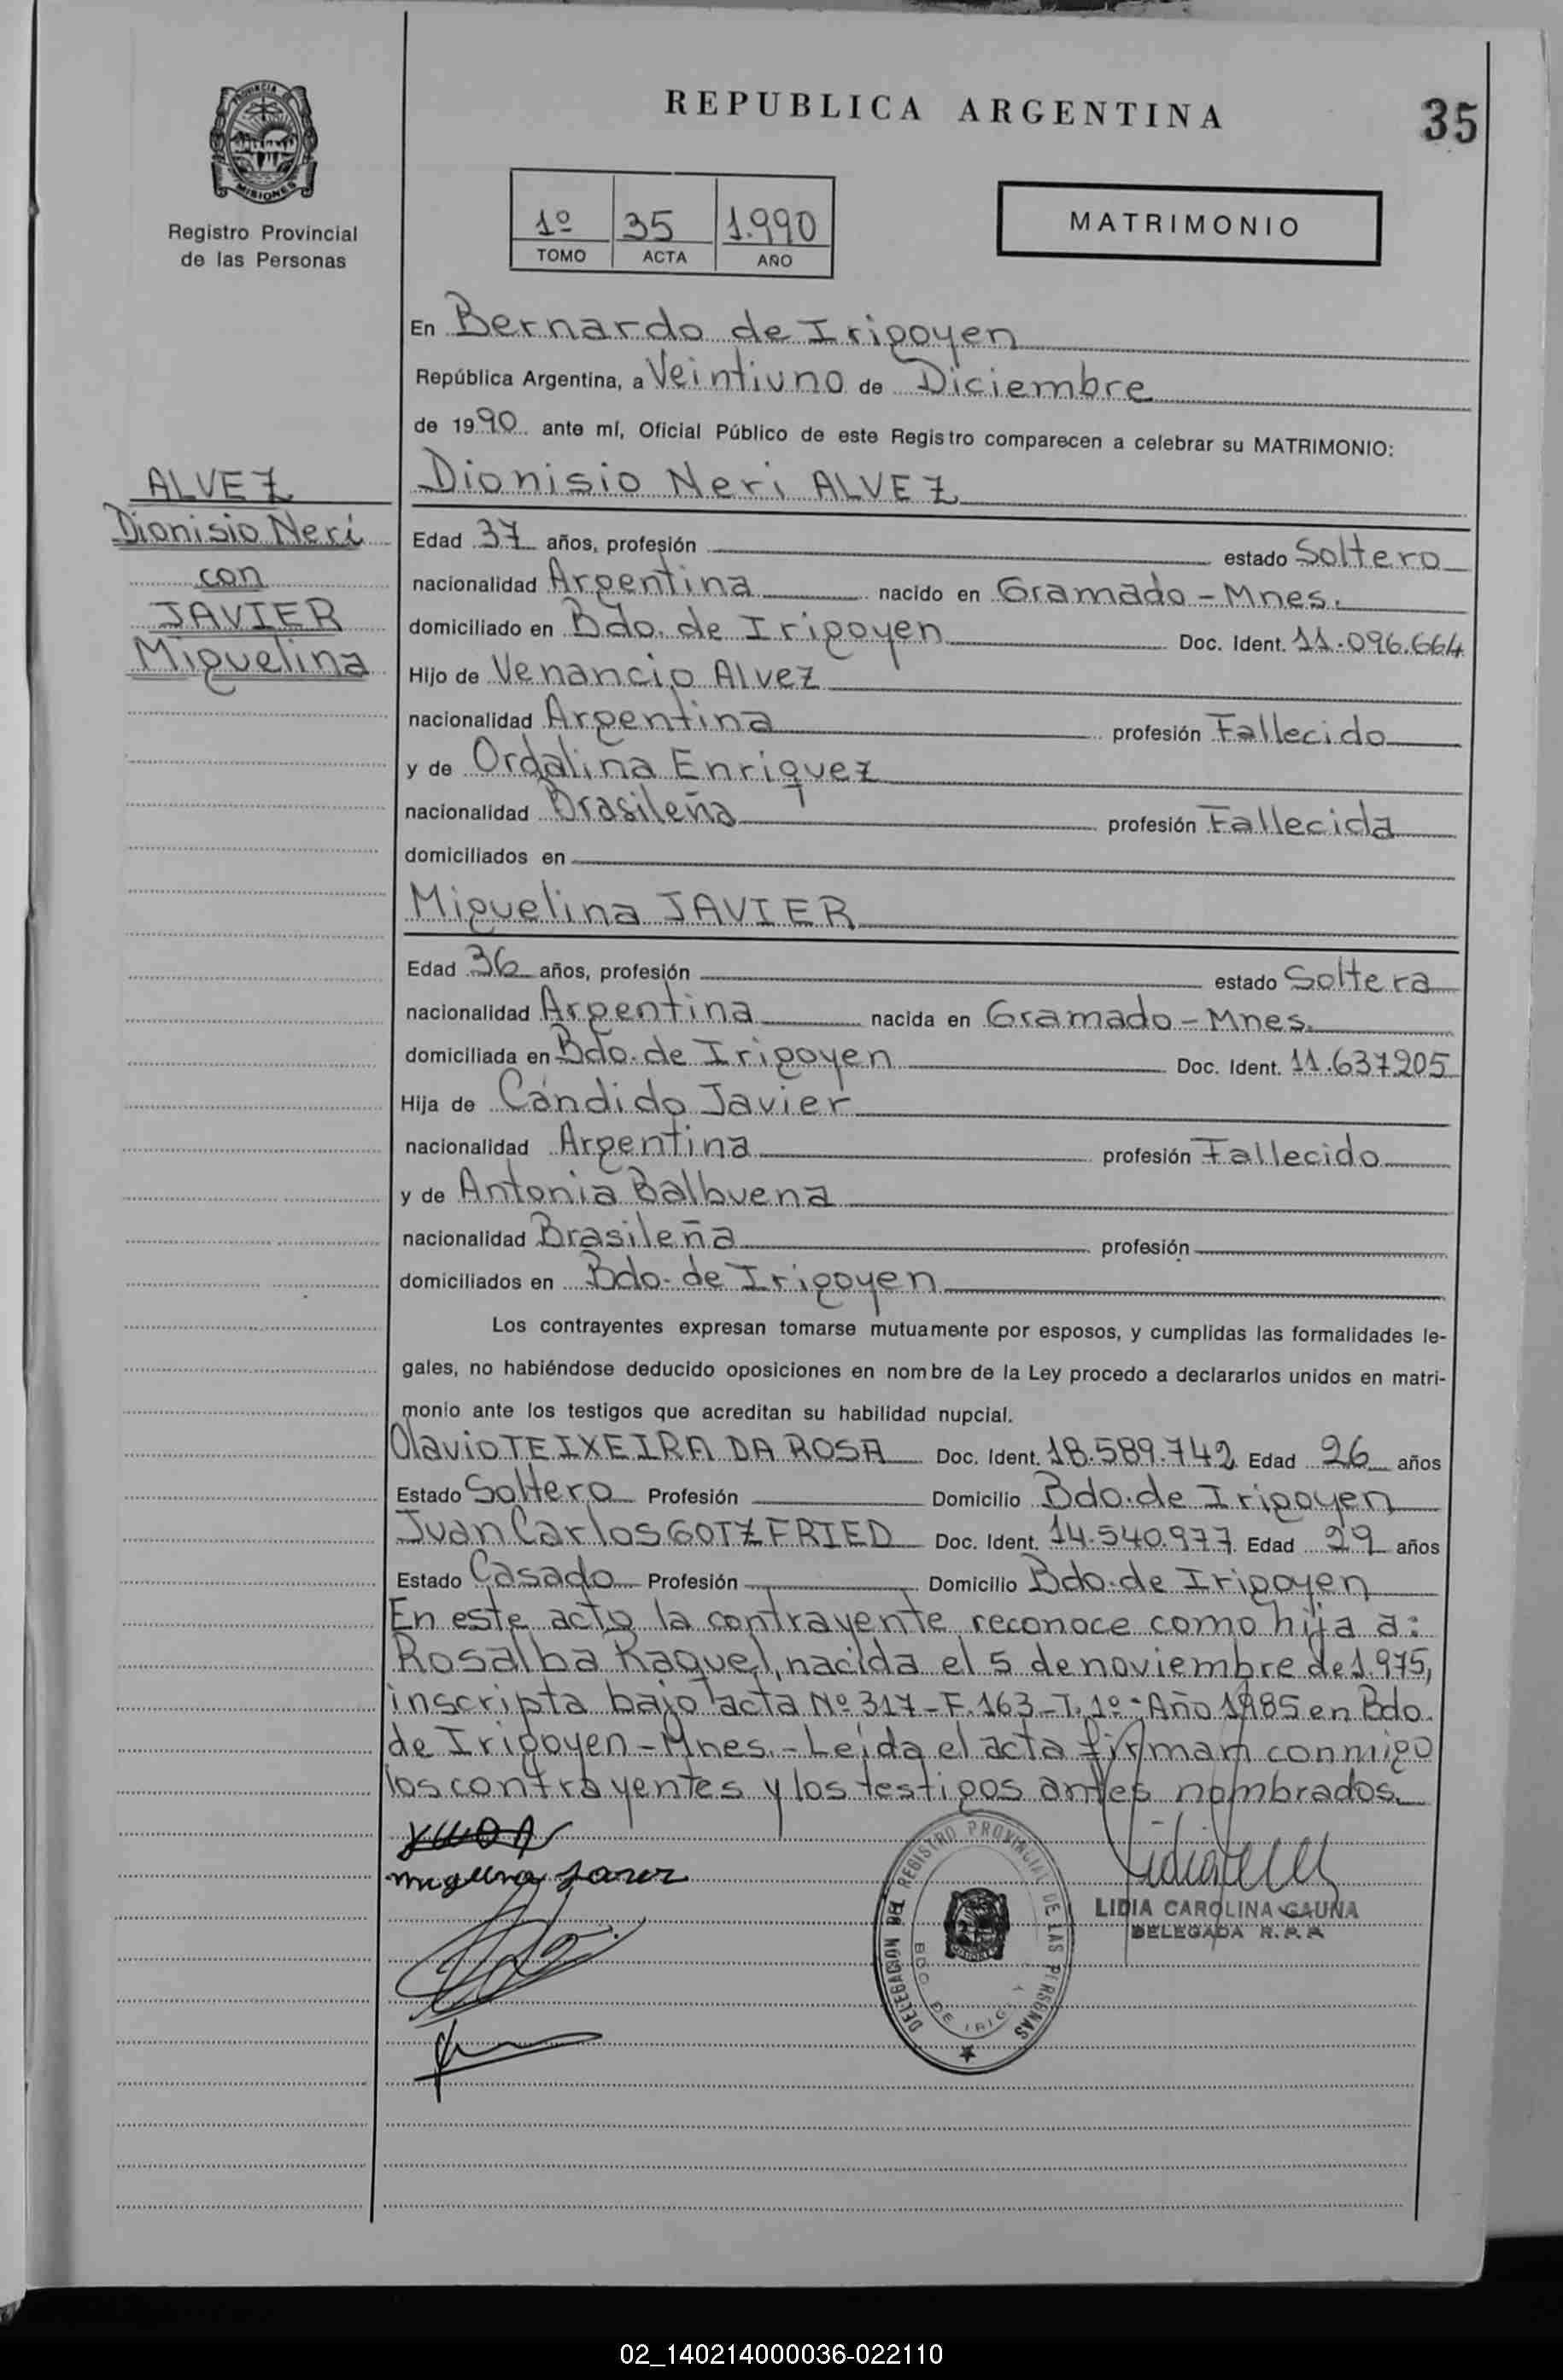 REPUBLICA ARGENTINA
35
PROVINCIA DE
MISIONES
Registro Provincial
de las Personas
1º 35 1.990
TOMO ACTA AÑO
MATRIMONIO
En Bernardo de Irigoyen
República Argentina, a Veintiuno de Diciembre
de 1990 ante mí, Oficial Público de este Registro comparecen a celebrar su MATRIMONIO:
ALVEZ
Dionisio Neri
con
JAVIER
Miguelina
Dionisio Neri ALVEZ
Edad 37 años, profesión estado Soltero
nacionalidad Argentina nacido en Gramado - Mnes.
domiciliado en Bdo. de Irigoyen Doc. Ident. 11.096.664
Hijo de Venancio Alvez
nacionalidad Argentina profesión Fallecido
y de Ordalina Enriquez
nacionalidad Brasileña profesión Fallecida
domiciliados en
Miguelina JAVIER
Edad 36 años, profesión estado Soltera
nacionalidad Argentina nacida en Gramado - Mnes.
domiciliada en Bdo. de Irigoyen Doc. Ident. 11.637.205
Hija de Cándido Javier
nacionalidad Argentina profesión Fallecido
y de Antonia Balbuena
nacionalidad Brasileña profesión
domiciliados en Bdo. de Irigoyen
Los contrayentes expresan tomarse mutuamente por esposos, y cumplidas las formalidades le-
gales, no habiéndose deducido oposiciones en nombre de la Ley procedo a declararlos unidos en matri-
monio ante los testigos que acreditan su habilidad nupcial.
Olavio TEIXEIRA DA ROSA Doc. Ident. 18.589.742 Edad 26 años
Estado Soltero Profesión Domicilio Bdo. de Irigoyen
Juan Carlos GOTZFRIED Doc. Ident. 14.540.977 Edad 29 años
Estado Casado Profesión Domicilio Bdo. de Irigoyen
En este acto la contrayente reconoce como hija a:
Rosalba Raquel, nacida el 5 de noviembre de 1.975,
inscripta bajo acta Nº 317 - F. 163 - T. 1º - Año 1985 en Bdo.
de Irigoyen - Mnes. - Leída el acta firman conmigo
los contrayentes y los testigos antes nombrados.
LIDIA CAROLINA GAUNA
DELEGADA R.P.P.
DELEGACION DEL REGISTRO PROVINCIAL DE LAS PERSONAS
BDO DE IRIG
02_140214000036-022110